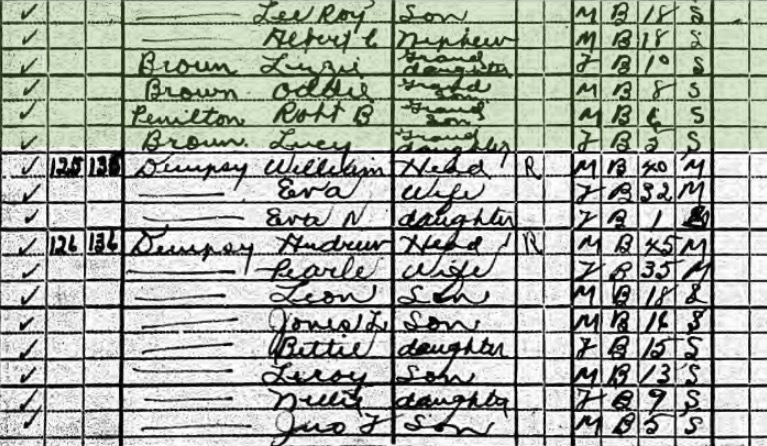 ✓ —— Lee Roy Son M B 18 S
✓ —— Albert C Nephew M B 18 S
✓ Brown Lizzie Grand daughter F B 10 S
✓ Brown Oddie Grand son M B 8 S
✓ Penilton Robt B Grand Son M B 6 S
✓ Brown Lucy Grand daughter F B 5 S
✓ 125 135 Dempsy William Head R M B 40 M
✓ —— Eva Wife F B 32 M
✓ —— Eva N daughter F B 1 S
✓ 126 136 Dempsy Andrew Head R M B 45 M
✓ —— Pearle Wife F B 35 M
✓ —— Leon Son M B 18 S
✓ —— Jones L Son M B 16 S
✓ —— Bettie daughter F B 15 S
✓ —— Leroy Son M B 13 S
✓ —— daughter F B 9 S
✓ —— Jno F Son M B 5 S